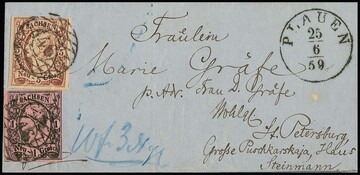 PLAUEN
25
6
59
SACHSEN
SACHSEN
Fräulein
Marie Gräfe
p. Adr. Frau D. Gräfe
Wohlgb.
St. Petersburg,
Große Puschkarskaja, Haus
Steinmann.